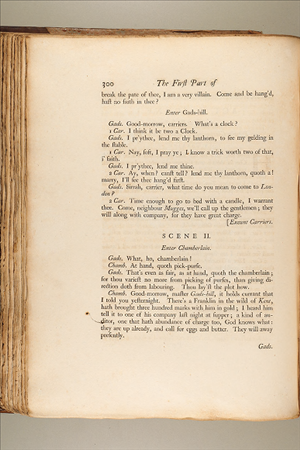 300 The First Part of
break the pate of thee, I am a very villain. Come and be hang'd,
hast no faith in thee?
Enter Gads-hill.
Gads. Good-morrow, carriers. What's a clock?
1 Car. I think it be two a Clock.
Gads. I pr'ythee, lend me thy lanthorn, to see my gelding in
the stable.
1 Car. Nay, soft, I pray ye; I know a trick worth two of that,
i' faith.
Gads. I pr'ythee, lend me thine.
2 Car. Ay, when? canst tell? lend me thy lanthorn, quoth a!
marry, I'll see thee hang'd first.
Gads. Sirrah, carrier, what time do you mean to come to Lon-
don?
2 Car. Time enough to go to bed with a candle, I warrant
thee. Come, neighbour Mugges, we'll call up the gentlemen; they
will along with company, for they have great charge.
[Exeunt Carriers.
SCENE II.
Enter Chamberlain.
Gads. What, ho, chamberlain!
Chamb. At hand, quoth pick-purse.
Gads. That's even as fair, as at hand, quoth the chamberlain;
for thou variest no more from picking of purses, than giving di-
rection doth from labouring. Thou lay'st the plot how.
Chamb. Good-morrow, master Gads-hill, it holds current that
I told you yesternight. There's a Franklin in the wild of Kent,
hath brought three hundred marks with him in gold; I heard him
tell it to one of his company last night at supper; a kind of au-
ditor, one that hath abundance of charge too, God knows what:
they are up already, and call for eggs and butter. They will away
presently.
Gads.